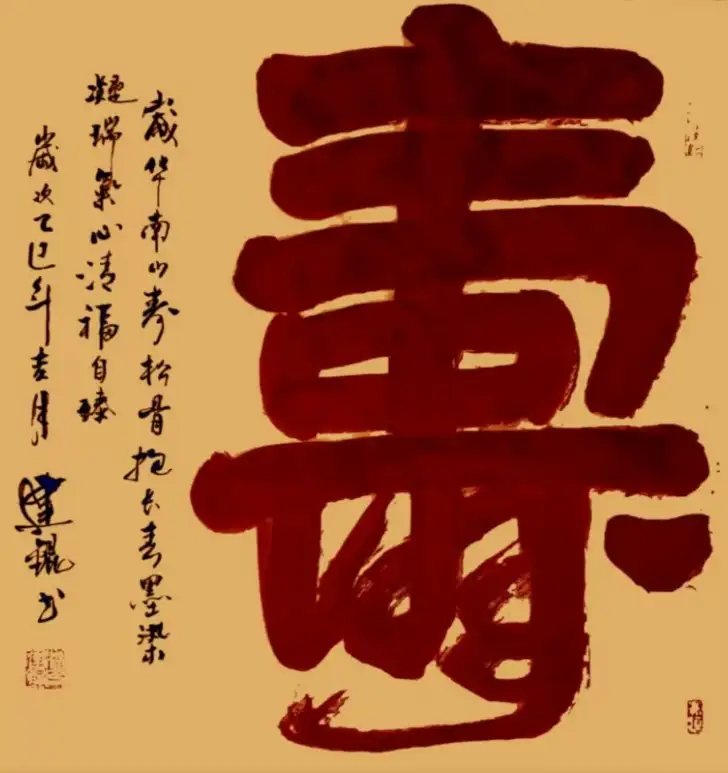 壽
歲华南山寿松骨抱长春墨染
凝瑞氣心清福自臻
歲次乙巳年吉月
建錕书